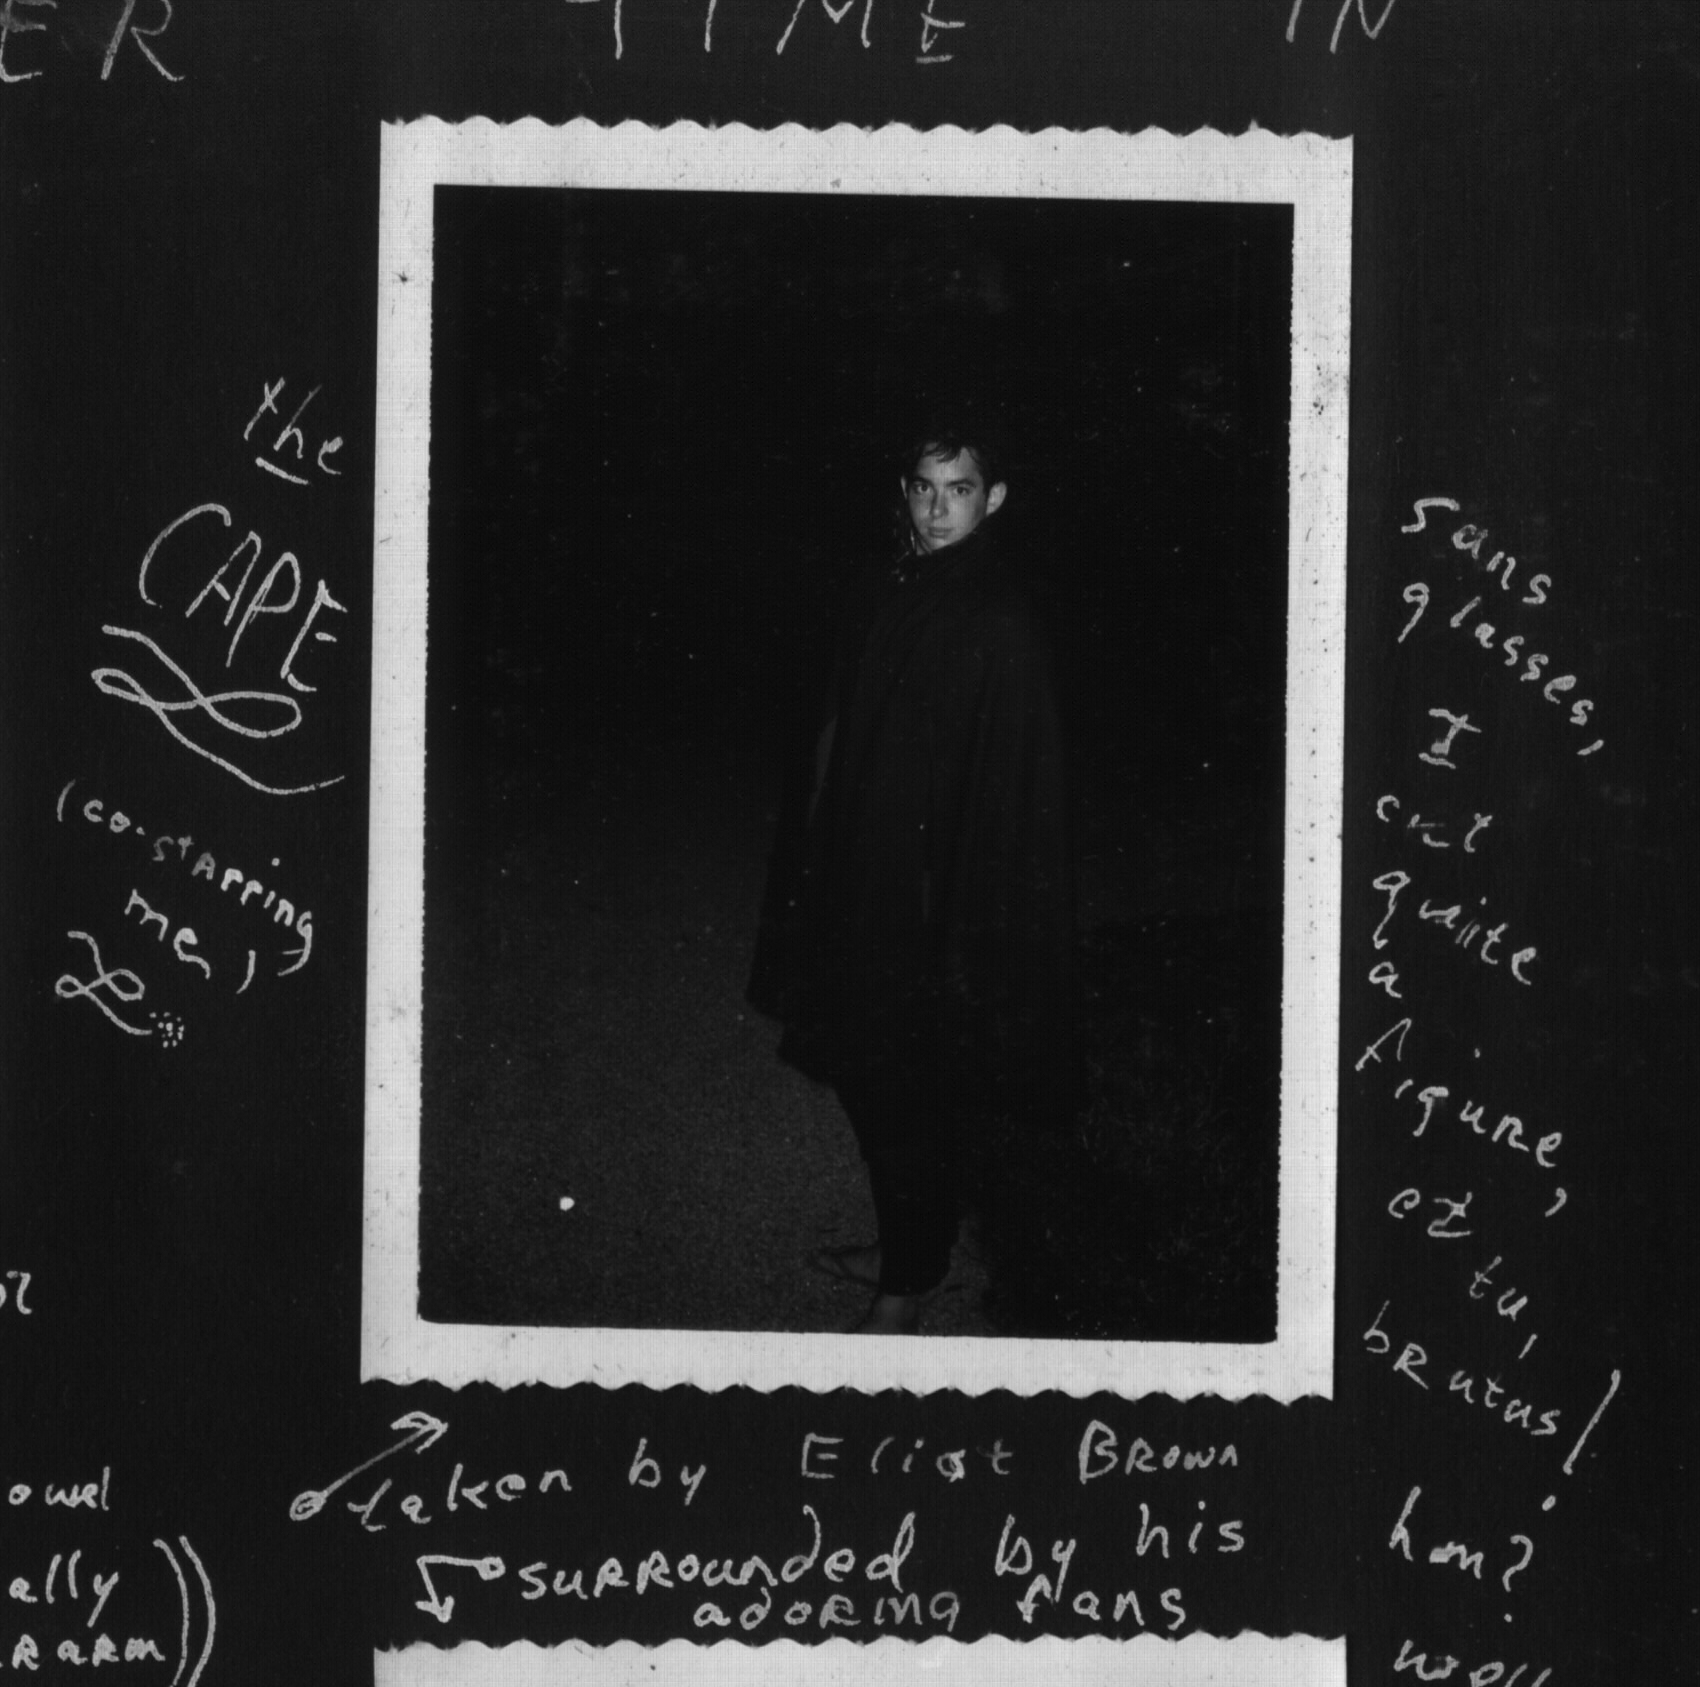 ER TIME IN
the
CAPE
(co-starring
me,)
sans
glasses,
I
cut
quite
a
figure,
et tu,
brutus!
hm?
taken by Eliot Brown
surrounded by his
adoring fans
owel
ally